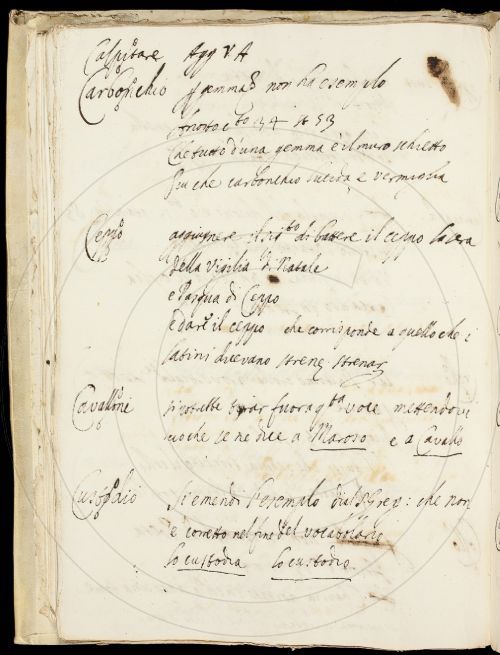 Calpitare Agg V A
Carbonchio p gemma non ha esemplo
Ariosto cto 34 st 53
Che tutto d'una gemma è il muro schietto
Piu che carbonchio lucida e vermiglia
Ceppo aggiugnere il rito di battere il ceppo la sera
della vigilia di Natale
e Pasqua di Ceppo
e dare il ceppo che corrisponde a quello che i
latini dicevano strene strenar
Cavallone si potrebbe tirar fuora qta voce mettendovi
cio che se ne dice a Maroso e a Cavallo
Custodio Si emendi l'esemplo di S. Greg: che non
e corretto nel fine del vocabolario
lo custodia lo custodio